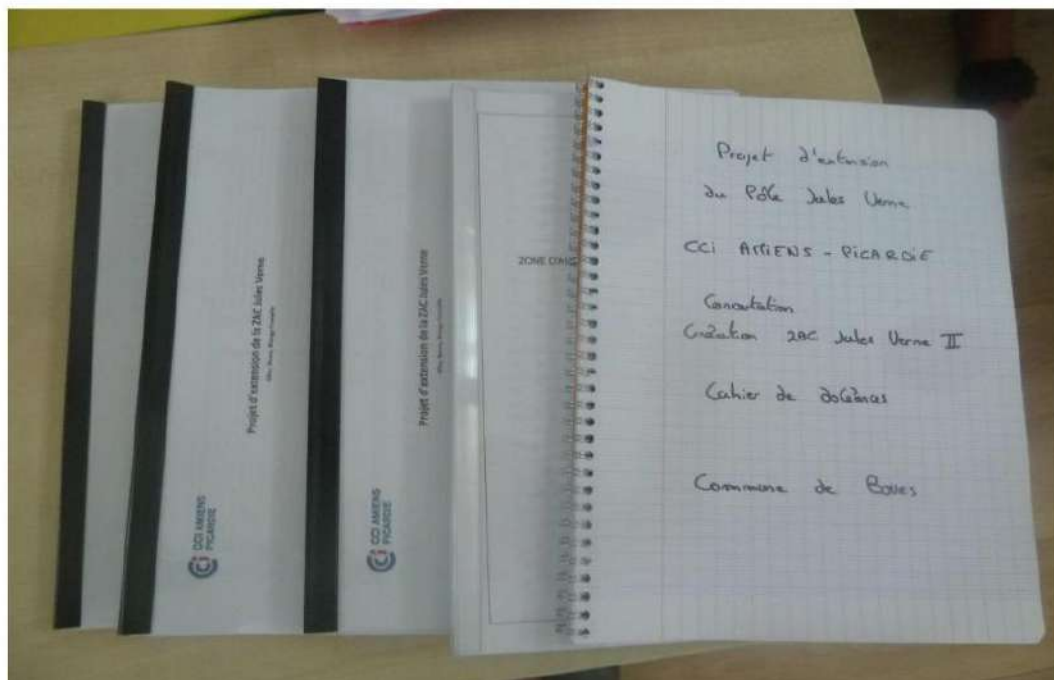 CCI AMIENS
PICARDIE
Projet d'extension de la ZAC Jules Verne
CCI AMIENS
PICARDIE
Projet d'extension de la ZAC Jules Verne
ZONE D'
Projet d'extension
du Pôle Jules Verne
CCi AMIENS - PiCARDiE
Concertation
Création ZAC Jules Verne II
Cahier de doléances
Commune de Boves